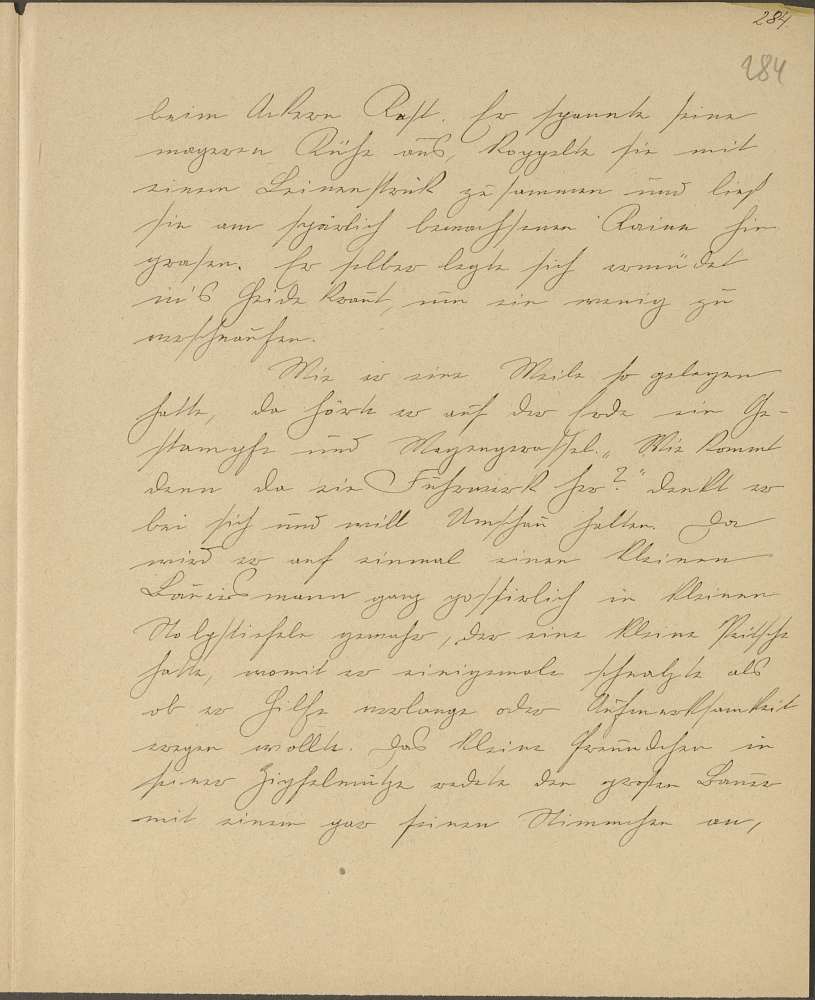 284.
284
beim Ackern Rast. Er spannte seine
mageren Kühe aus, koppelte sie mit
einem Leinenstrick zusammen und ließ
sie am spärlich bewachsenen Raine hin
grasen. Er selber legte sich ermüdet
in's Heidekraut, um ein wenig zu
verschnaufen.
Wie er eine Weile so gelegen
hatte, da hörte er auf der Erde ein Ge-
stampfe und Wagengerassel. „Wie kommt
denn da ein Fuhrwerk her?" denkt er
bei sich und will Umschau halten. Da
wird er auf einmal einen kleinen
Bauersmann ganz possierlich in kleinen
Stolpstiefeln gewahr, der eine kleine Peitsche
hatte, womit er einigemale schnalzte als
ob er Hilfe verlange oder Aufmerksamkeit
eregen wollte. Das kleine Freundchen in
seiner Zipfelmütze redete den großen Bauer
mit einem gar feinen Stimmchen an,